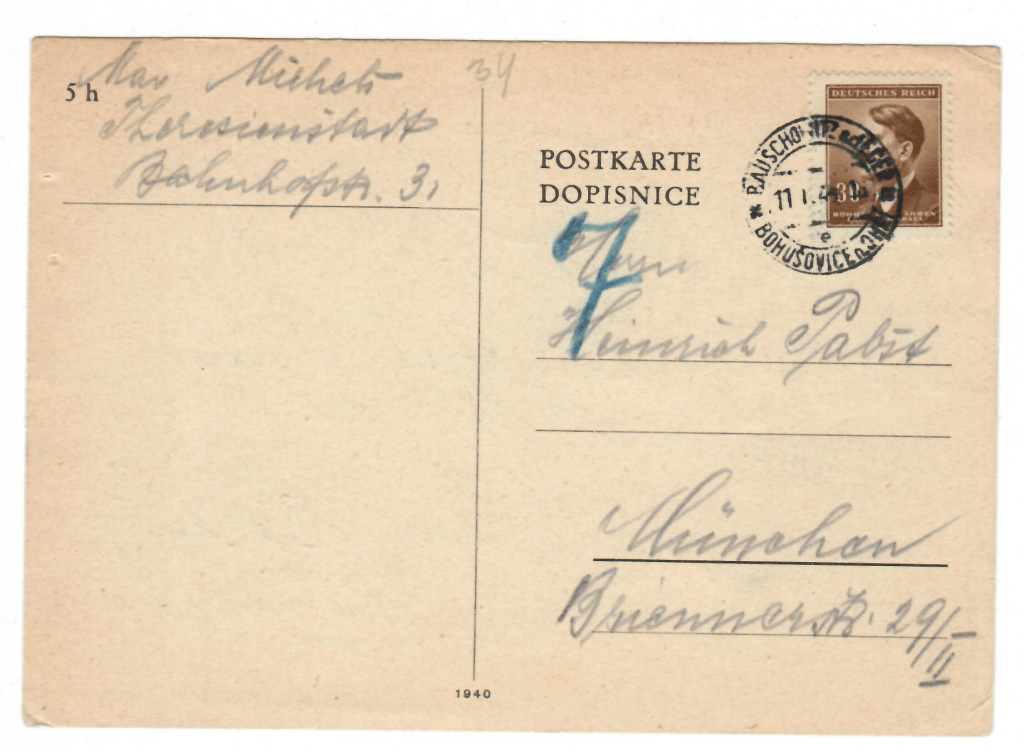 5 h
Max Michels
Theresienstadt
Bahnhofstr. 31
34
POSTKARTE
DOPISNICE
DEUTSCHES REICH
BAUSCHOWITZ a.d. EGER
BOHUŠOVICE
7
Herrn
Heinrich Pabst
München
Briennerstr. 29/II
1940